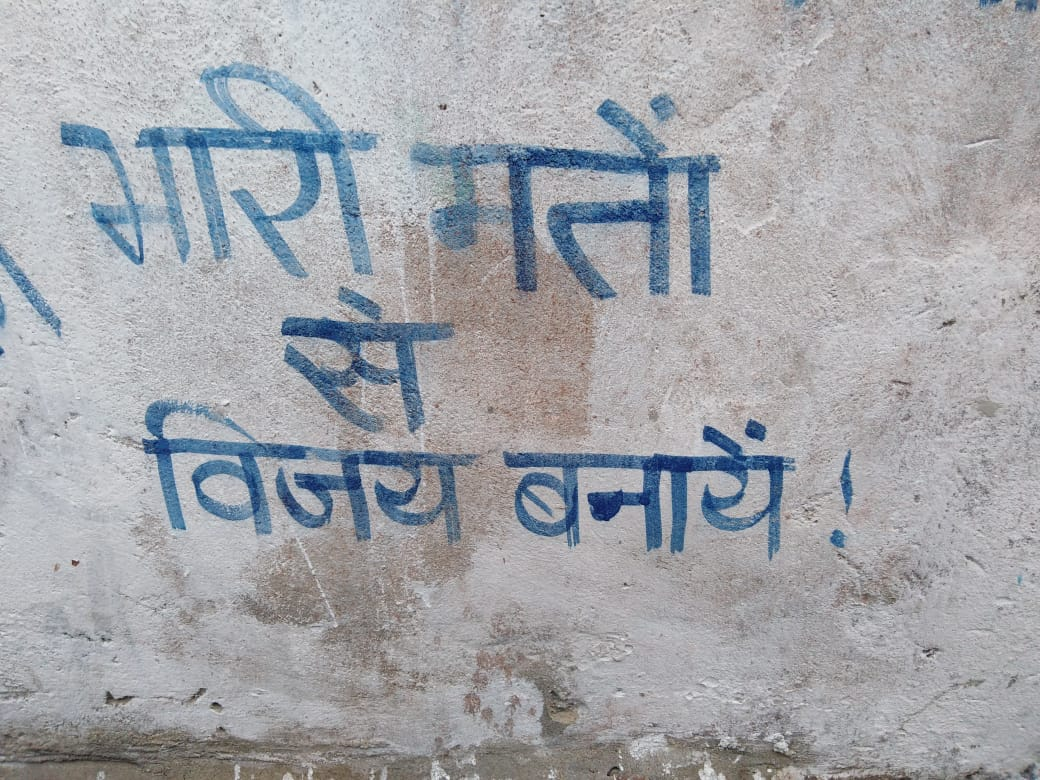 भारी मतों
से
विजय बनायें !